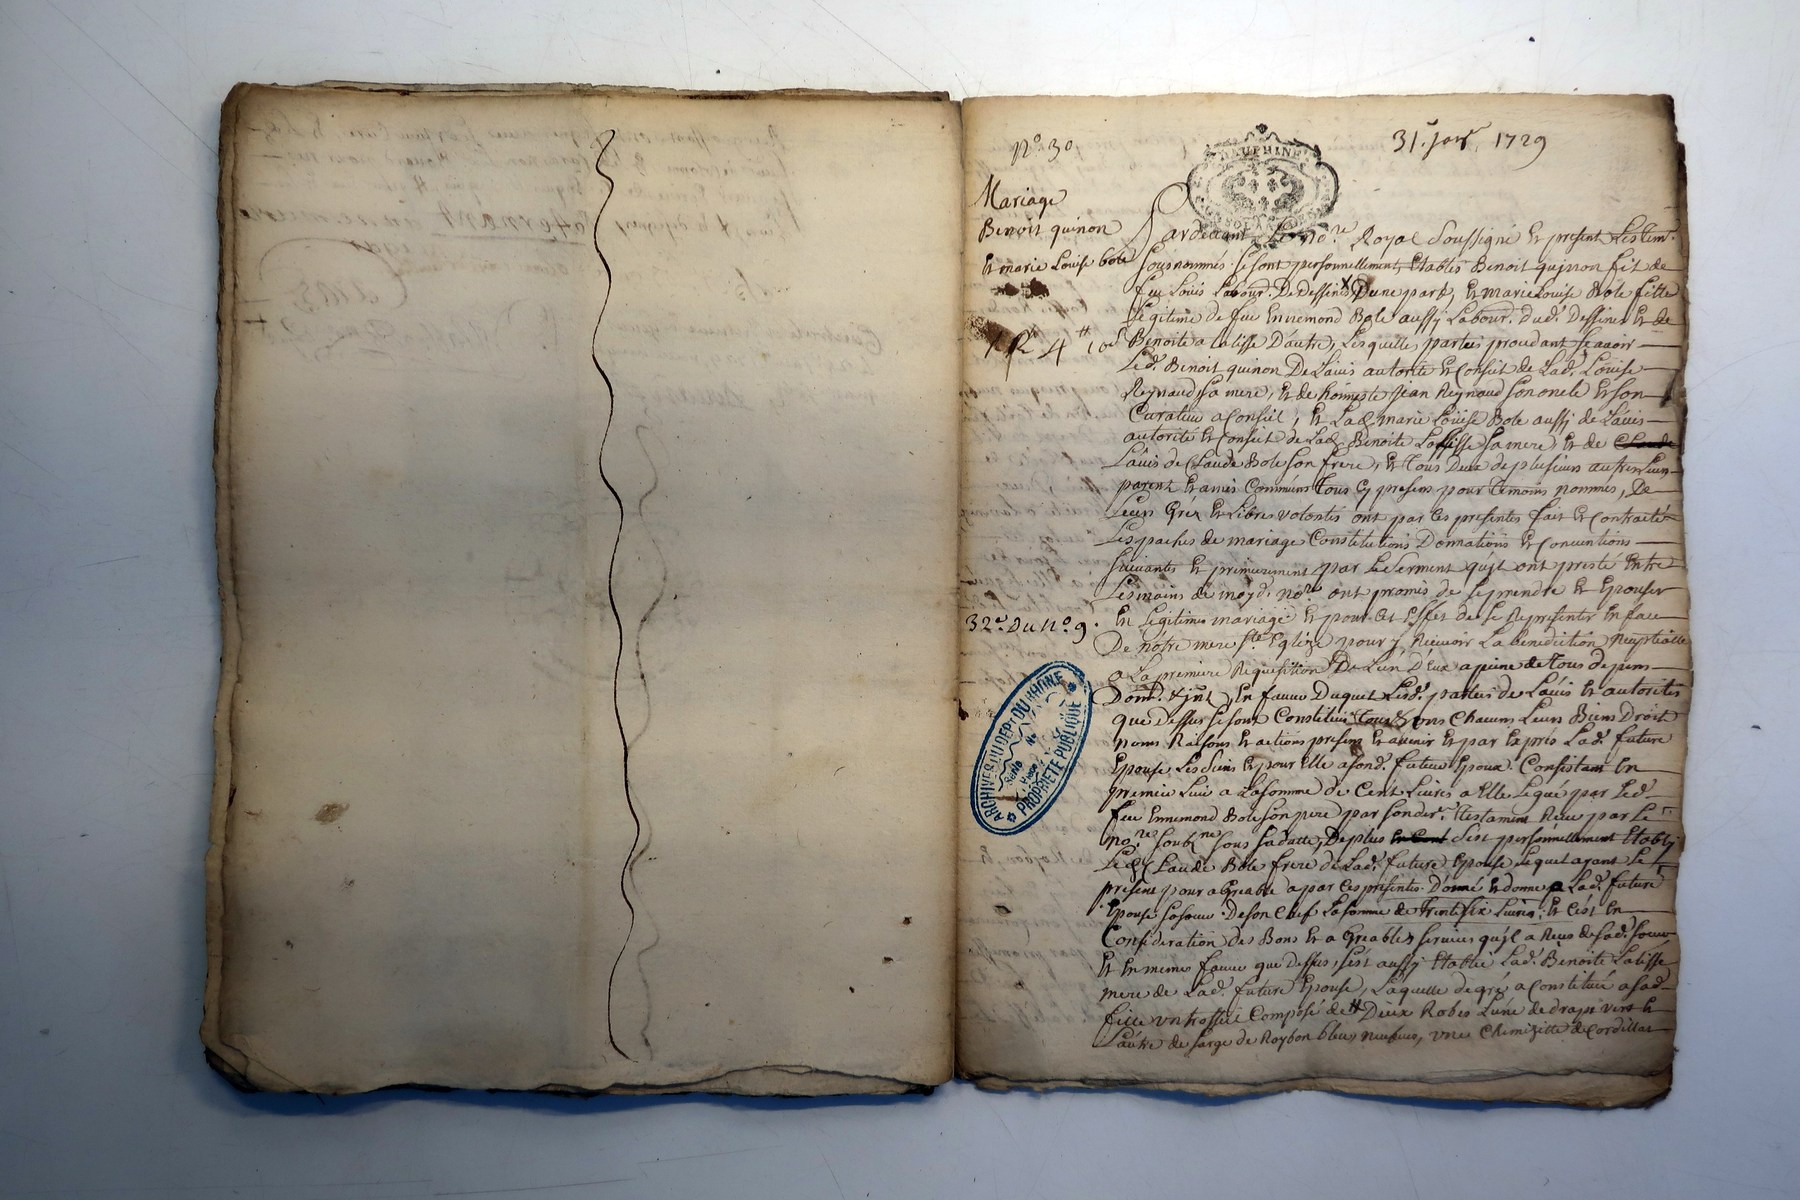 N.º 30
31.r janr. 1729
DAUPHINE
Mariage
Benoit quinon
Et marie Louise bole
4 tt 10s
32e. Du N.º 9.
ARCHIVES DU DEPT DU RHONE
Serie
No
PROPRIÉTÉ PUBLIQUE
Pardevant Le no.re Royal Soussigné Et present Les tem.
Sousnommés se sont personnellement Etablis Benoit quinon fil de
feu Louis Labour. De dessines D'une part, Et marie Louise Bole fille
Legitime de feu Ennemond Bole aussy Labour. dud. Dessines Et de
Benoite Latisse D'autre, Lesquelles parties procedant scavoir
Led. Benoit quinon De L'avis autorité Et Conseil de Lad. Louise
Reynaud sa mere, Et de honneste Jean Reynaud son oncle Et son
Curateur a Conseil, Et Lad. marie Louise Bole aussy de L'avis
autorité Et Conseil de Lad. Benoite Latisse sa mere, Et de Claude
L'avis de Claude Bole son frere, Et tous Deux de plusieurs autres Leurs
parens Et amis Communs tous Cy presens pour temoins nommés, De
Leurs Gréz Et Libres volontés ont par Ces presentes fait Et Contracté
Les paches de mariage Constitutions Donnations Et Conventions
suivantes Et premierement par Le serment qu'ils ont presté Entre
Les mains de moyd. no.re ont promis de se prendre Et Epouser
En Legitime mariage Et pour Cet Effet de se Representer En face
De notre mere S.te Eglize pour y Recevoir La benediction nuptialle
a La premiere Requisition De L'un D'Eux a peine de tous depens
Dom. & jnt, En faveur Duquel Lesd. parties de L'avis Et autorités
que dessus se sont Constitués tous Chacuns Leurs Biens Droits
noms Raisons Et actions presens Et avenir Et par Exprés Lad. future
Epouse Les siens Et pour Elle a sond. futur Epoux. Consistant En
premier Lieu a La somme de Cent Livres a Elle Legué par Led.
feu Ennemond Bole son pere par son der. testament Receu par Le
no.re soubz.ne sous sa datte, De plus s'est personnellement Etably
Led. Claude Bole frere de Lad. future Epouse Lequel ayant Le
present pour agreable a par Ces presentes. Donné Et donne a Lad. future
Epouse sa soeur. De son Chef La somme de trente six Livres, Et C'est En
Consideration des Bons Et agreables services qu'il a Receus de sad. soeur
Et En meme faveur que dessus, s'est aussy Etablie Lad. Benoite Latisse
mere de Lad. future Epouse, Laquelle de gré a Constitué a sad.
fille un trossel Composé de Deux Robes L'une de drap vert Et
L'autre de sarge de Roybon bleu neufves, une Chemizette de Cordillat